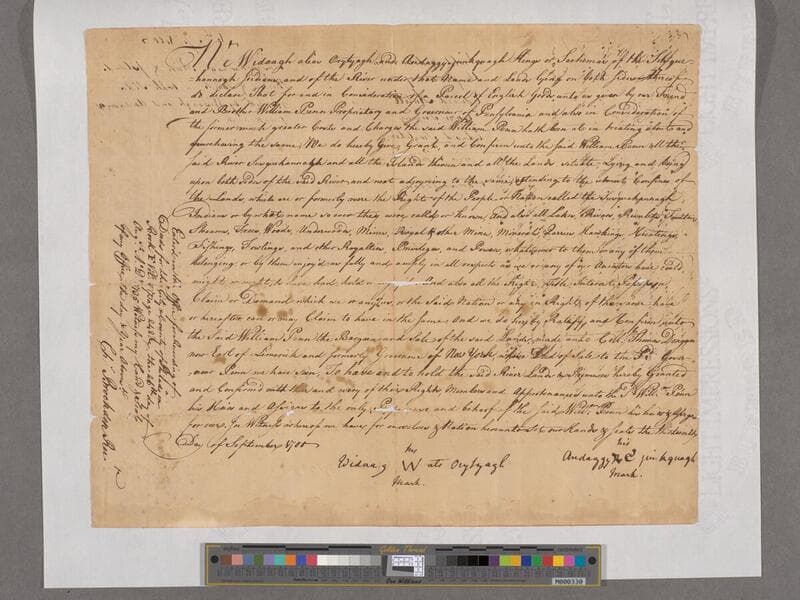 We Widaagh alias Orytyagh and Andaggy-junkquagh Kings or Sachema's of the Susque-
hannagh Indians, and of the River under that Name and Lands lying on both sides thereof
do declare That for and in Consideration of a Parcel of English Goods unto us given by our Friend
and Brother William Penn Proprietary and Governour of Pensylvania and also in Consideration of
the former much greater Costs and Charges the said William Penn hath been at in treating about and
purchasing the same, We do hereby Give, Grant, and Confirm unto the said William Penn all the
said River Susquehannagh and all the Islands therein and all the Lands Situate, Lying and being
upon both sides of the said River and next adjoyning to the same, extending to the utmost Confines of
the Lands which are or formerly were the Right of the People or Nation called the Susquehannagh
Indians or by what name soever they were called or known, And also all Lakes, Rivers, Runlets, Fountains,
Streams, Trees, Woods, Underwoods, Mines, Royal & other Mine, Minerals, Quarries, Hawkings, Huntings,
Fishings, Fowlings, and other Royalties, Privileges, and Powers, whatsoever to them or any of them
belonging or by them enjoy'd as fully and amply in all respects as we or any of our Ancestors have could,
might or ought to have had, held or And also all the Right, Title, Interest, Possession,
Claim or Demand which we or any of us, or the said Nation or any in Right of the same have
or hereafter can or may Claim to have in the same And we do hereby Ratify and Confirm unto
the said William Penn the Bargain and Sale of the said Lands, made unto Coll. Thomas Dongan
now Earl of Limerick and formerly Governour of New York whose Deed of Sale to the sd. Gover-
nour Penn we have seen, To have and to hold the said River Lands & Premises hereby Granted
and Confirmed with their and every of their Rights, Members and Appurtenances unto the sd. Willm. Penn
his Heirs and Assigns to the only Proper use and behoof of the said Willm. Penn his heirs & Assigns
for ever. In Witness whereof we have for ourselves & Nation hereunto set our Hands & Seals the Thirteenth
Day of September 1700
his
Widaagh W als Orytyagh
Mark.
his
Andaggy junkquagh
Mark.
Entred in the Office for Recording of
Deeds for the City & County of Philadelphia
Book F Vol 8 page 242 &c. the 26th day of
Augt. A. D. 1735 Witness my hand & Seal of
my Office the day & Year abovesd.
C. Brockden Recr.
Golden Thread
Don Williams
M000330